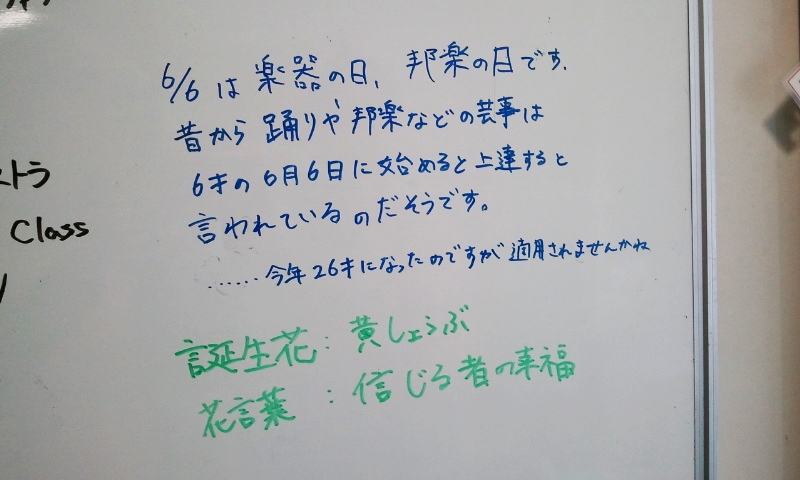 ストラ
Class
6/6は楽器の日、邦楽の日です.
昔から踊りや邦楽などの芸事は
6才の6月6日に始めると上達すると
言われているのだそうです。
……今年26才になったのですが適用されませんかね
誕生花:黄しょうぶ
花言葉:信じる者の幸福